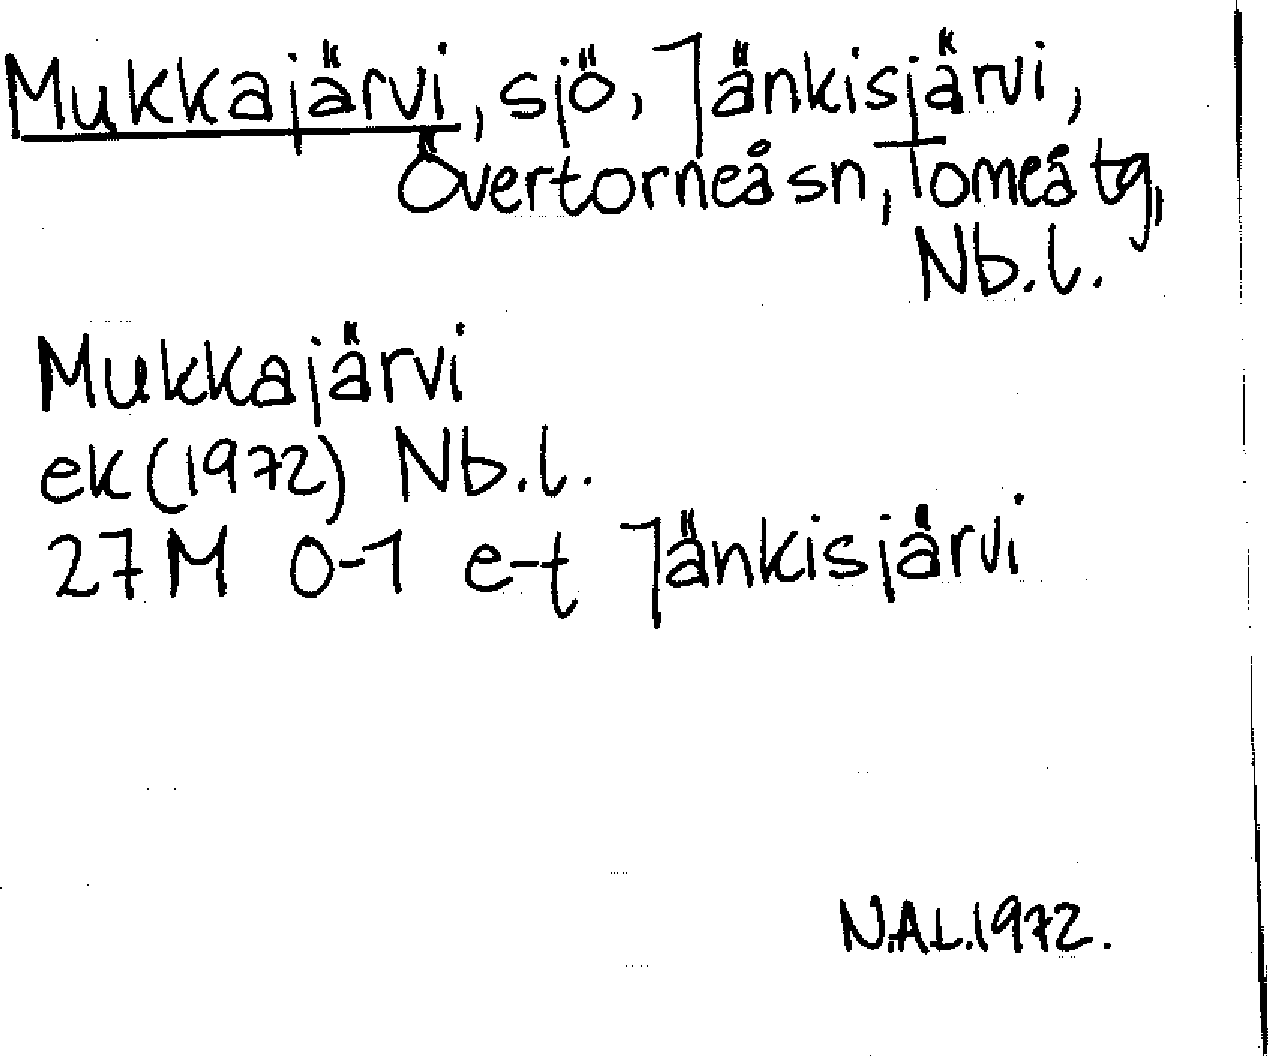 Mukkajärvi, sjö, Jänkisjärvi,
Övertorneå sn, Torneå tg,
Nb.l.
Mukkajärvi
ek (1972) Nb.l.
27M 0-1 e-t Jänkisjärvi
N.A.L. 1972.